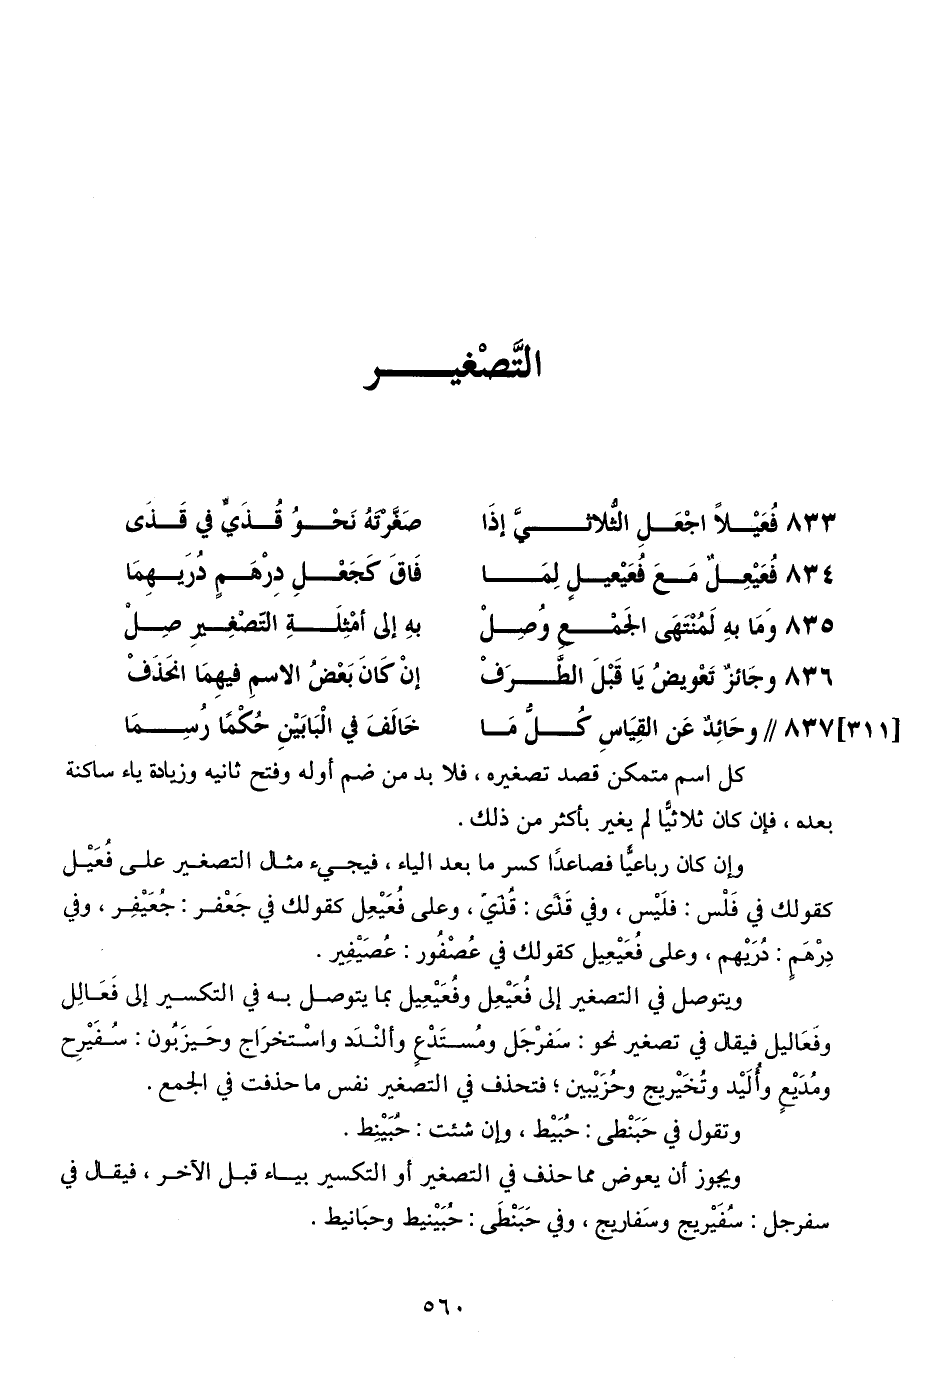 التَّصْغير
٨٣٣ فُعَيْلاً اجْعَلِ الثُّلاثيَّ إذَا صَغَّرْتَهُ نَحْوُ قُذَيٍّ في قَذَى
٨٣٤ فُعَيْعِلٌ مَعَ فُعَيْعيلٍ لِمَا فَاقَ كَجَعْلِ دِرْهَمٍ دُرَيهِمَا
٨٣٥ وَمَا بهِ لَمُنْتَهَى الجَمْعِ وُصِلْ بهِ إلى أمْثِلَةِ التَّصْغِيرِ صِلْ
٨٣٦ وجَائزٌ تَعْويضُ يَا قَبْلَ الطَّرَفْ إنْ كَانَ بَعْضُ الاسمِ فيهِمَا انحَذَفْ
[٣١١] ٨٣٧ // وحَائِدٌ عَن القِيَاسِ كُلُّ مَا خَالَفَ في الْبَابَيْنِ حُكْمًا رُسِمَا
كل اسم متمكن قصد تصغيره ، فلا بد من ضم أوله وفتح ثانيه وزيادة ياء ساكنة
بعده ، فإن كان ثلاثيًّا لم يغير بأكثر من ذلك .
وإن كان رباعيًّا فصاعدًا كسر ما بعد الياء ، فيجيء مثال التصغير على فُعَيْل
كقولك في فَلْس : فلَيْس ، وفي قذًى : قُذَيّ ، وعلى فُعَيْعِل كقولك في جَعْفر : جُعَيْفِر ، وفي
دِرْهَمٍ : دُرَيْهم ، وعلى فُعَيْعِيل كقولك في عُصْفُور : عُصَيْفِير .
ويتوصل في التصغير إلى فُعَيْعِل وفُعَيْعِيل بما يتوصل به في التكسير إلى فَعَالِل
وفَعَاليل فيقال في تصغير نحو : سَفرْجَل ومُستَدْعٍ وألنْدَد واسْتخراج وحَيزَبُون : سُفَيْرِج
ومُدَيْعٍ وأُلَيْد وتُخَيْريج وحُزَيْبين ؛ فتحذف في التصغير نفس ما حذفت في الجمع .
وتقول في حَبَنْطى : حُبَيْط ، وإن شئت : حُبَيْنِط .
ويجوز أن يعوض مما حذف في التصغير أو التكسير بياء قبل الآخر ، فيقال في
سفرجل : سُفَيْريج وسَفاريج ، وفي حَبَنْطَى : حُبَيْنيط وحبَانيط .
٥٦٠